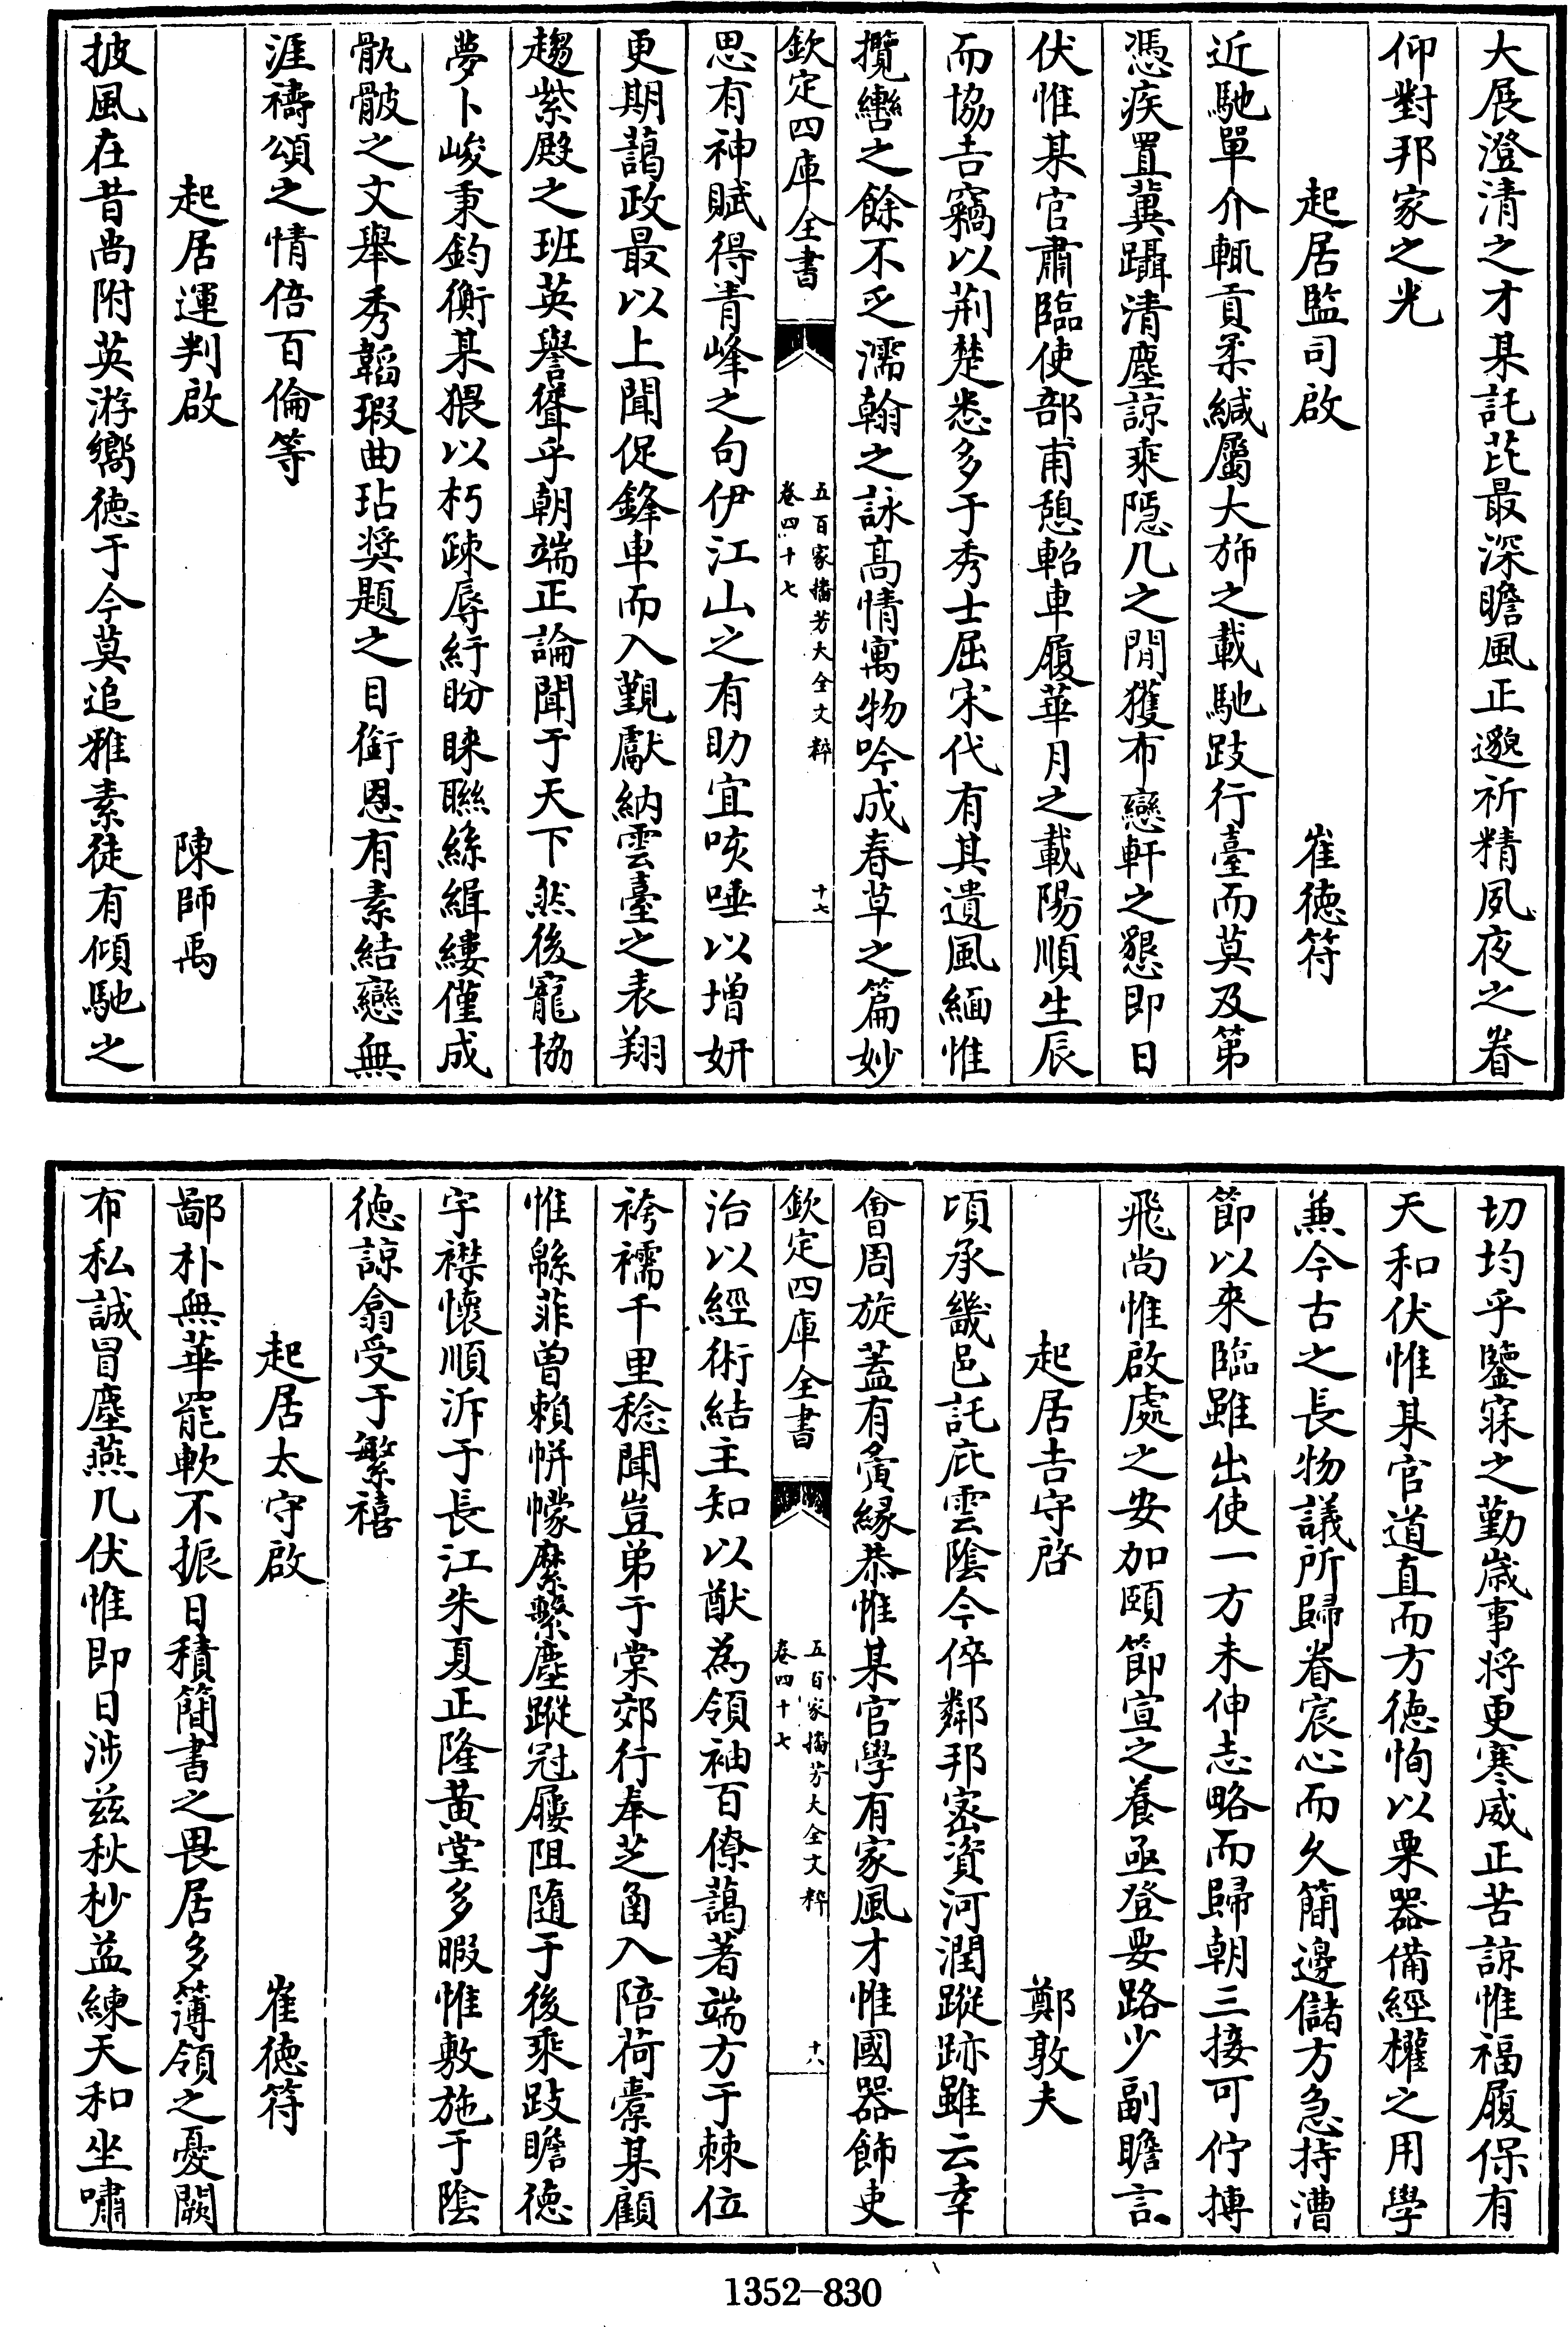 大展澄清之才某託芘最深瞻風正邈祈精夙夜之眷
仰對邦家之光
起居監司啟 崔徳符
近馳單介輒貢柔緘屬大斾之載馳跂行臺而莫及第
憑疾置冀躡清塵諒乘隠几之閒獲布戀軒之懇即日
伏惟某官肅臨使部甫憩軺車履華月之載陽順生辰
而協吉竊以荆楚悉多于秀士屈宋代有其遺風緬惟
攬轡之餘不乏濡翰之詠高情寓物吟成春草之篇妙
欽定四庫全書
五百家播芳大全文粹
卷四十七
十七
思有神賦得青峰之句伊江山之有助宜咳唾以增妍
更期藹政最以上聞促鋒車而入覲獻納雲臺之表翔
趨紫殿之班英譽聳乎朝端正論聞于天下然後寵協
夢卜峻秉鈞衡某猥以朽疎辱紆盼睞聯絲緝縷僅成
骩骳之文舉秀韜瑕曲玷奨題之目銜恩有素結戀無
涯禱頌之情倍百倫等
起居運判啟 陳師禹
披風在昔尚附英游嚮徳于今莫追雅素徒有傾馳之
切均乎鑒寐之勤歳事将更寒威正苦諒惟福履保有
天和伏惟某官道直而方徳恂以栗器備經權之用學
兼今古之長物議所歸眷宸心而久簡邊儲方急持漕
節以来臨雖出使一方未伸志略而歸朝三接可佇摶
飛尚惟啟處之安加頤節宣之養亟登要路少副瞻言
起居吉守啓 鄭敦夫
頃承畿邑託庇雲陰今倅鄰邦宻資河潤蹤跡雖云幸
㑹周旋蓋有夤緣恭惟某官學有家風才惟國器飾吏
欽定四庫全書
五百家播芳大全文粹
卷四十七
十八
治以經術結主知以猷為領袖百僚藹著端方于棘位
袴襦千里稔聞豈弟于棠郊行奉芝函入陪荷橐某顧
惟緜菲曽賴帡幪縻繫塵蹤冠屨阻隨于後乘跂瞻徳
宇襟懷順泝于長江朱夏正隆黄堂多暇惟敷施于陰
徳諒翕受于繁禧
起居太守啟 崔徳符
鄙朴無華罷軟不振日積簡書之畏居多簿領之憂闕
布私誠冒塵燕几伏惟即日涉兹秋杪益練天和坐嘯
1352-830